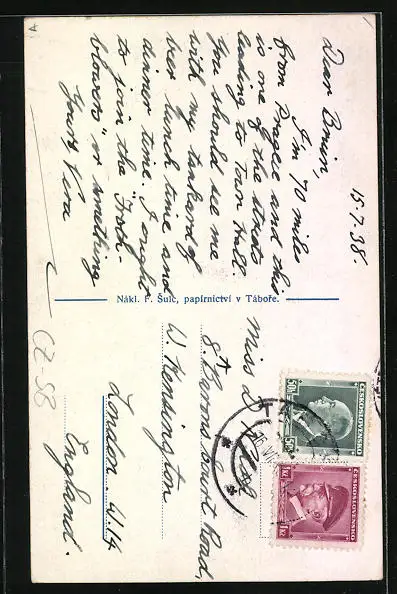 15.7.38.
Dear Bruin,
I'm 70 miles
from Prague and this
is one of the streets
leading to Town Hall
You should see me
with my tankard of
beer lunch time and
dinner time. I ought
to join the "Froth-
blowers" or something
Yours Vera
Nákl. F. Šulc, papírnictví v Táboře.
Miss D
8, Barons Court Road,
W. Kensington
London W.14
England.
CZ-SB
ČESKOSLOVENSKO
50h
50h
ČESKOSLOVENSKO
1Kč
1Kč